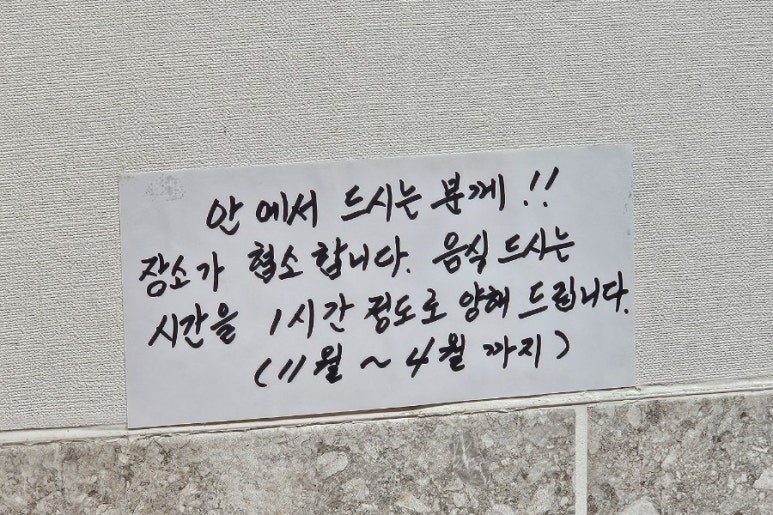 안 에서 드시는 분께!!
장소가 협소합니다. 음식 드시는
시간을 1시간 정도로 양해 드립니다.
(11월 ~ 4월 까지)